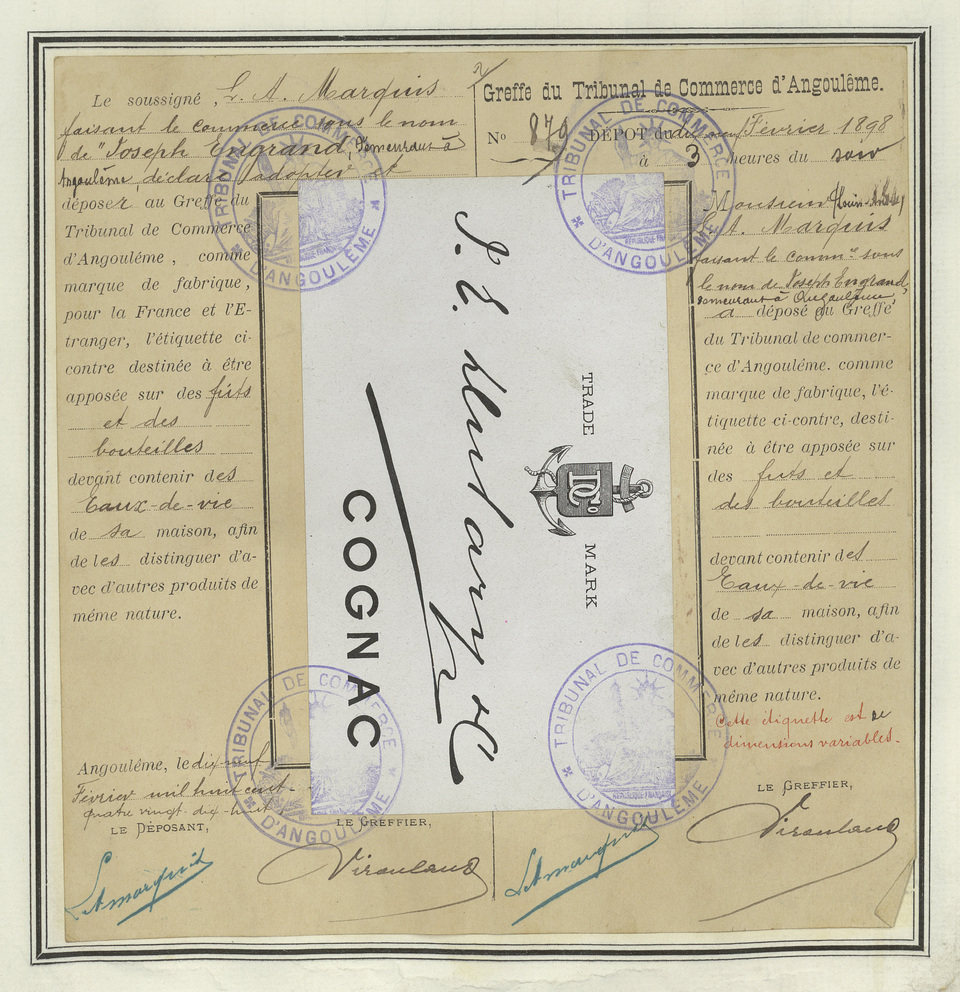 Le soussigné, L. A. Marquis
faisant le commerce sous le nom
de "Joseph Engrand", demeurant à
Angoulême, déclare adopter et
déposer au Greffe du
Tribunal de Commerce
d'Angoulême, comme
marque de fabrique,
pour la France et l'E-
tranger, l'étiquette ci-
contre destinée à être
apposée sur des fûts
et des
bouteilles
devant contenir des
Eaux-de-vie
de sa maison, afin
de les distinguer d'a-
vec d'autres produits de
même nature.
Angoulême, le dix-neuf
Février mil huit cent-
quatre vingt-dix-huit
LE DÉPOSANT,
LAMarquis
LE GREFFIER,
TRADE MARK
DCo
COGNAC
Greffe du Tribunal de Commerce d'Angoulême.
No 879 DÉPÔT du dix neuf Février 1898
à 3 heures du soir
Monsieur
L. A. Marquis
faisant le comm.ce sous
le nom de Joseph Engrand,
demeurant à Angoulême,
a déposé au Greffe
du Tribunal de commer-
ce d'Angoulême. comme
marque de fabrique, l'é-
tiquette ci-contre, desti-
née à être apposée sur
des futs et
des bouteilles
devant contenir des
Eaux-de-vie
de sa maison, afin
de les distinguer d'a-
vec d'autres produits de
même nature.
Cette étiquette est de
dimensions variables.
LE GREFFIER,
LAMarquis
TRIBUNAL DE COMMERCE D'ANGOULÊME
TRIBUNAL DE COMMERCE D'ANGOULÊME
TRIBUNAL DE COMMERCE D'ANGOULÊME
TRIBUNAL DE COMMERCE D'ANGOULÊME